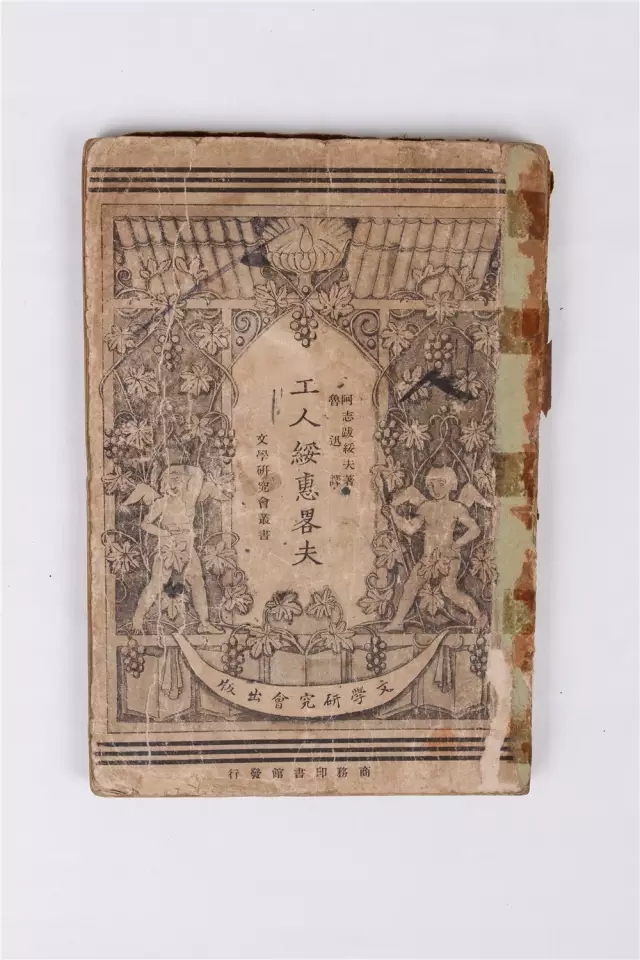 阿志跋綏夫著
魯迅譯
工人綏惠畧夫
文學研究會叢書
文學研究會出版
商務印書館發行